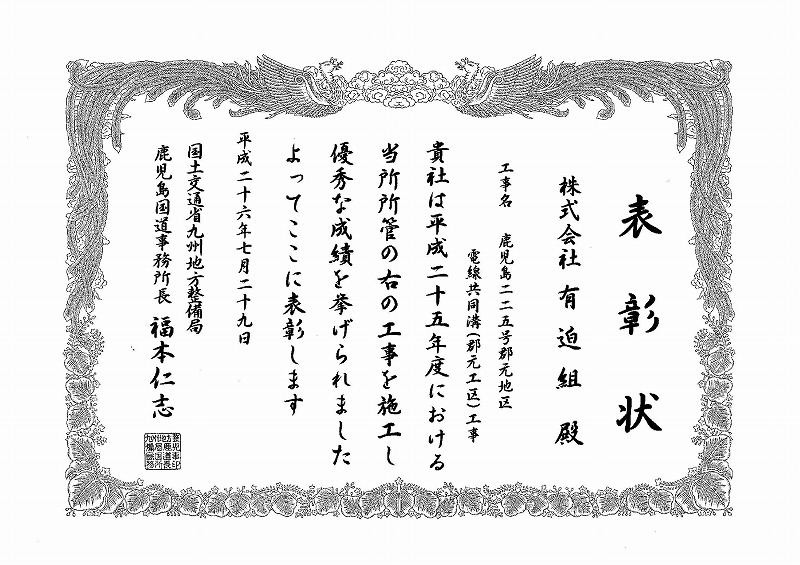 表彰状
株式会社 有迫組 殿
工事名 鹿児島二二五号郡元地区
電線共同溝(郡元工区)工事
貴社は平成二十五年度における
当所所管の右の工事を施工し
優秀な成績を挙げられました
よってここに表彰します
平成二十六年七月二十九日
国土交通省九州地方整備局
鹿児島国道事務所長 福本仁志